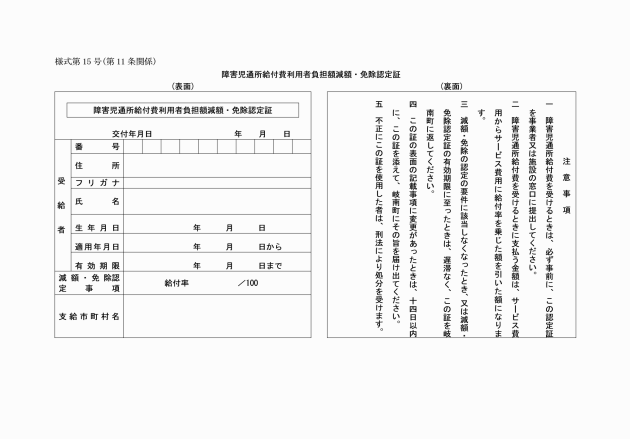 様式第15号(第11条関係)
障害児通所給付費利用者負担額減額・免除認定証
(表面)
障害児通所給付費利用者負担額減額・免除認定証
交付年月日 年 月 日
受給者
番号
住所
フリガナ
氏名
生年月日 年 月 日
適用年月日 年 月 日から
有効期限 年 月 日まで
減額・免除認
定事項
給付率 /100
支給市町村名
(裏面)
注意事項
一 障害児通所給付費を受けるときは、必ず事前に、この認定証
を事業者又は施設の窓口に提出してください。
二 障害児通所給付費を受けるときに支払う金額は、サービス費
用からサービス費用に給付率を乗じた額を引いた額になりま
す。
三 減額・免除の認定の要件に該当しなくなったとき、又は減額・
免除認定証の有効期限に至ったときは、遅滞なく、この証を岐
南町に返してください。
四 この証の表面の記載事項に変更があったときは、十四日以内
に、この証を添えて、岐南町にその旨を届け出てください。
五 不正にこの証を使用した者は、刑法により処分を受けます。